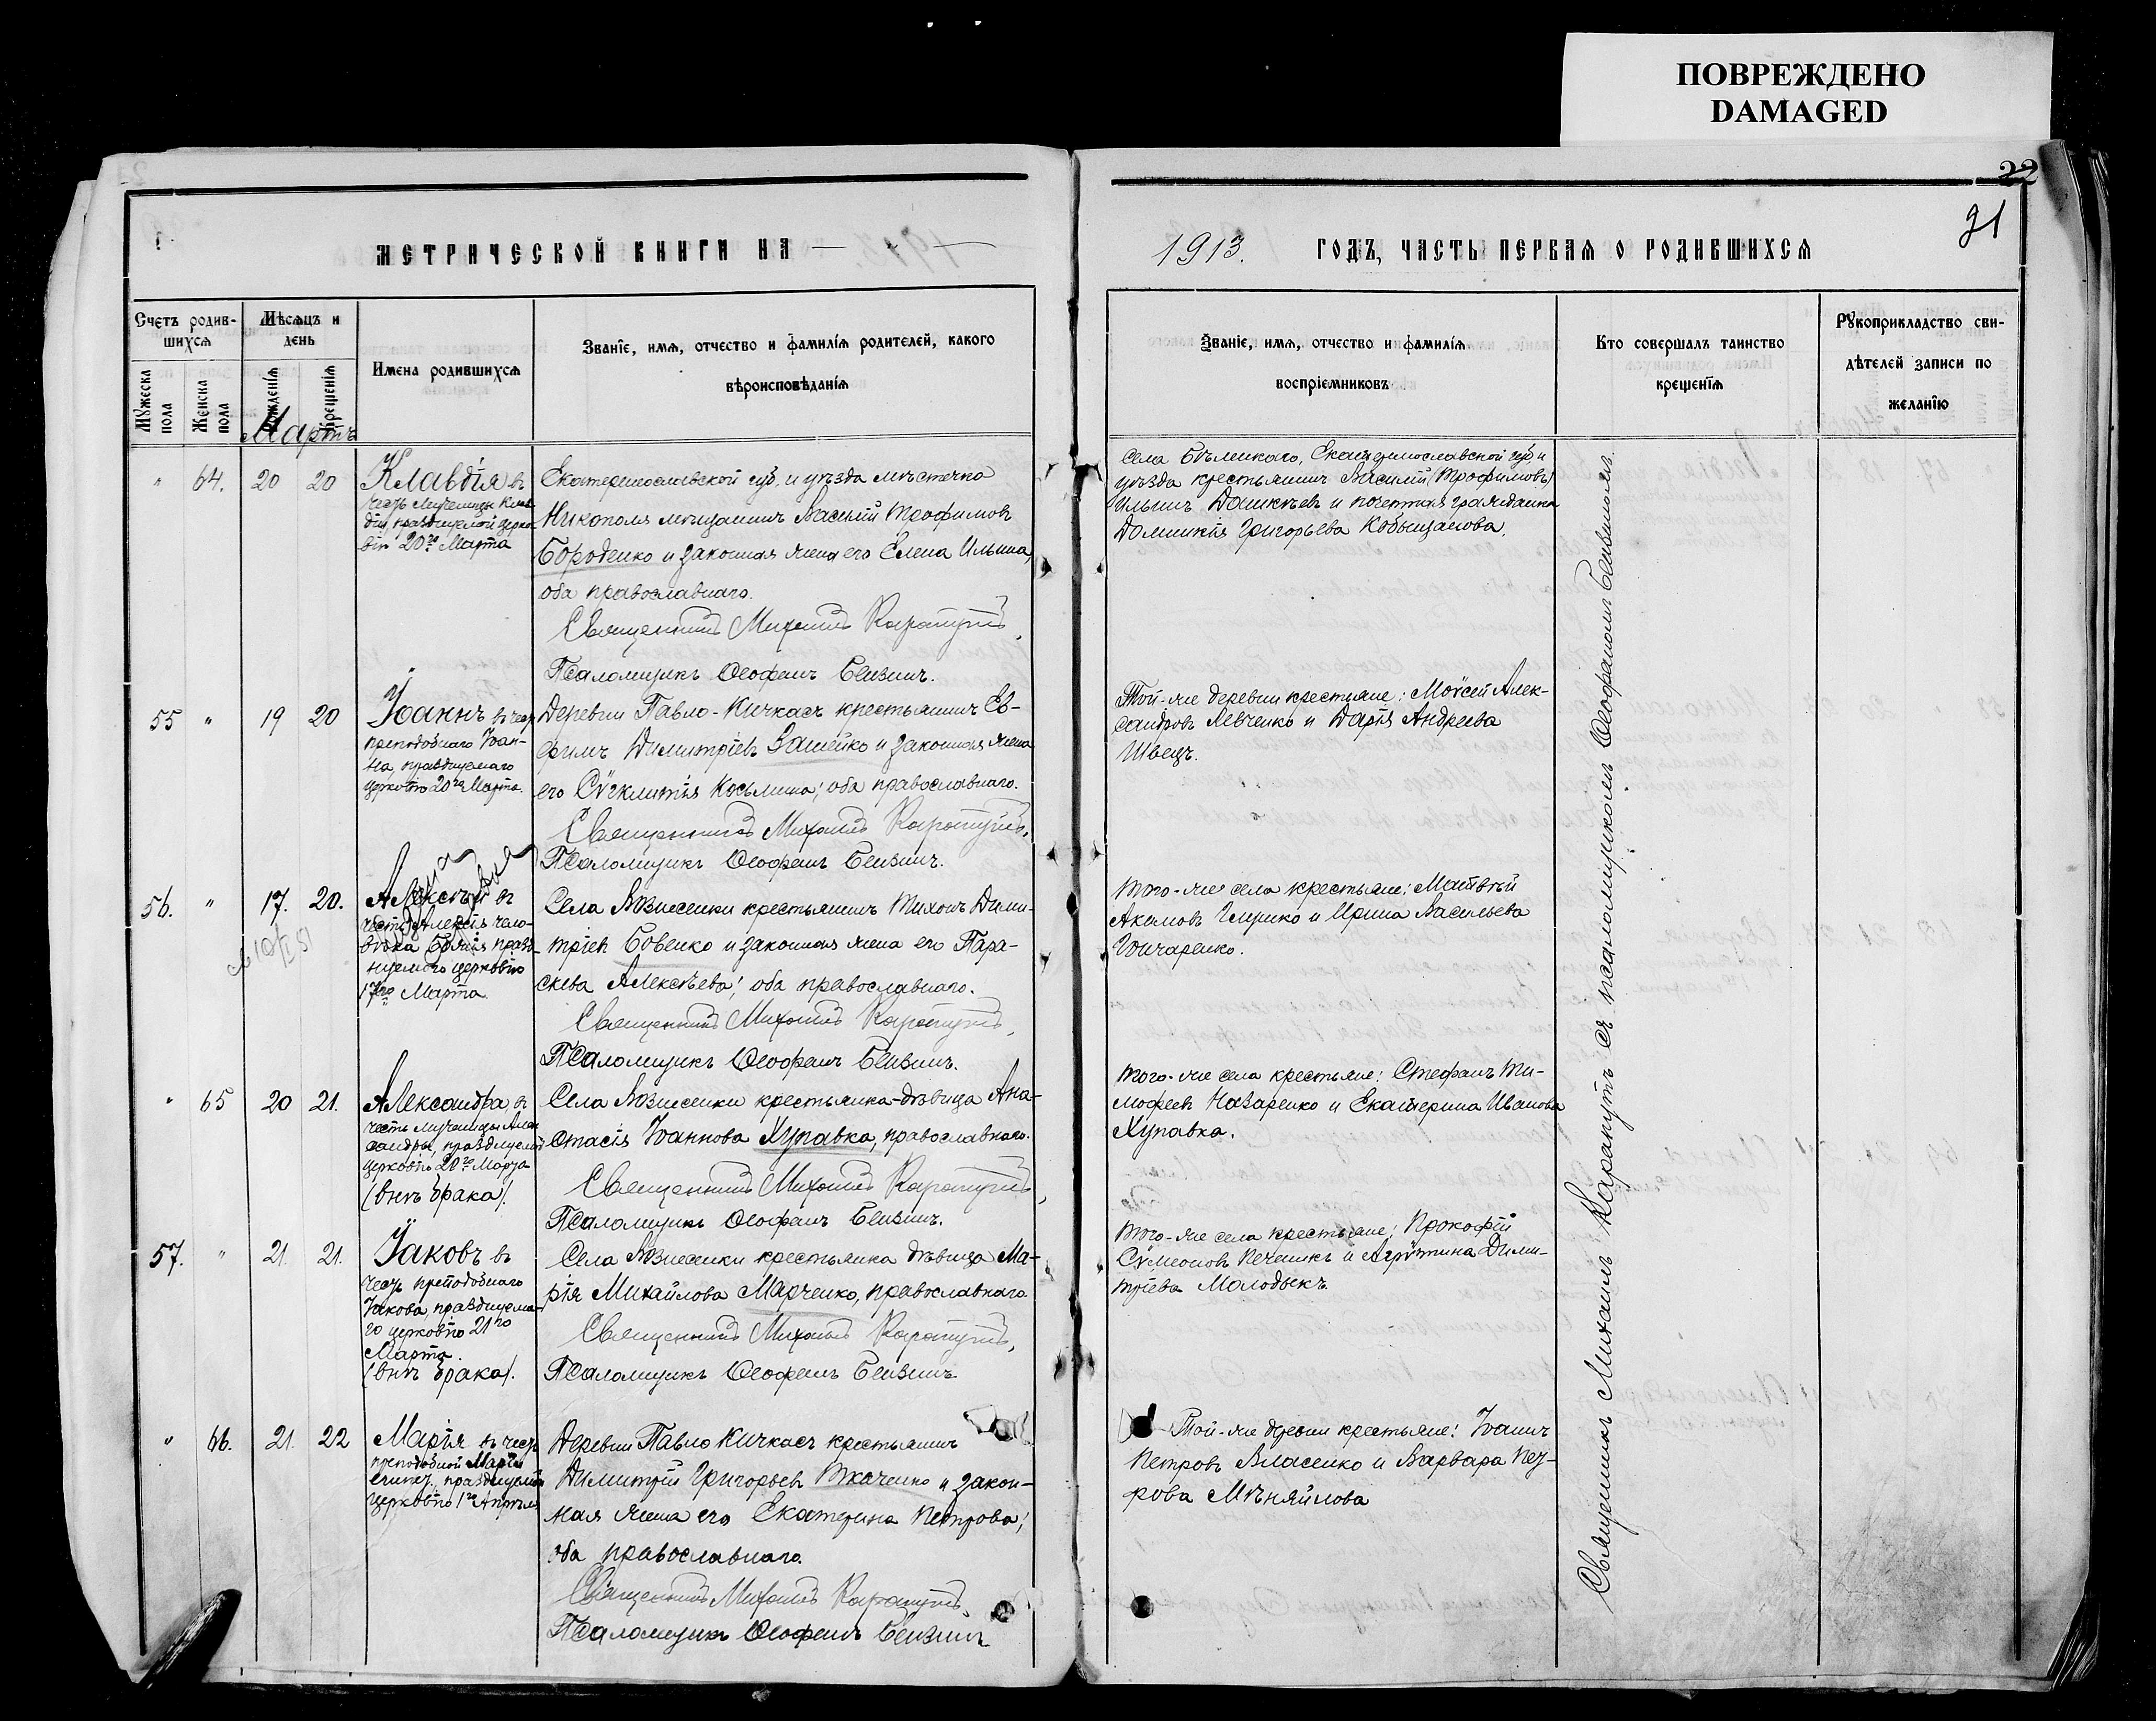 ПОВРЕЖДЕНО
DAMAGED
22
21
МЕТРИЧЕСКОЙ КНИГИ НА
1913. ГОДЪ, ЧАСТЬ ПЕРВАЯ О РОДИВШИХСЯ
Счетъ родив-
шихся
Мѣсяцъ и
день
Мужеска
пола
Женска
пола
Рожденія
Крещенія
Имена родившихся
Званіе, имя, отчество и фамилія родителей, какого
вѣроисповѣданія
Званіе, имя, отчество и фамилія
воспріемниковъ
Кто совершалъ таинство
крещенія
Рукоприкладство сви-
дѣтелей записи по
желанію
Мартъ
" 64. 20 20
Клавдія въ
честь Мученицы Клав-
діи, празднуемой церко-
вію 20го Марта
Екатеринославской губ. и уѣзда мѣстечка
Никополя мѣщанинъ Василій Трофимовъ
Бороденко и законная жена его Елена Ильина,
оба православнаго.
Священникъ Михаилъ Карапутъ
Псаломщикъ Ѳеофанъ
села Бѣленькаго, Екатеринославской губ. и
уѣзда крестьянинъ Василій (Трофимовъ)
Ильинъ и почетная гражданка
Домникія Григорьева
55 " 19 20
Іоаннъ въ честь
преподобнаго Іоан-
на, празднуемаго
церковію 20го Марта.
Деревни Павло-Кичкасъ крестьянинъ Ев-
фимъ Димитріевъ и законная жена
его Сѵгклитія Косьмина; оба православнаго.
Священникъ Михаилъ Карапутъ.
Псаломщикъ Ѳеофанъ
Той-же деревни крестьяне: Моѵсей Алек-
сандровъ Левченко и Дарія Андреева
Швецъ.
56. " 17. 20.
Алексѣй въ
честь Алексія чело-
вѣка Божія праз-
нуемаго церковію
17го Марта.
Села Вознесенки крестьянинъ Тихонъ Дими-
тріевъ Бовенко и законная жена его Пара-
скева Алексѣева; оба православнаго.
Священникъ Михаилъ Карапутъ,
Псаломщикъ Ѳеофанъ
Того-же села крестьяне: Матвѣй
Акимовъ и Ирина Васильева
Гончаренко.
" 65 20 21.
Александра въ
честь мученицы Алек-
сандры, празднуемой
церковію 20го Марта
(внѣ брака).
Села Вознесенки крестьянка-дѣвица Ана-
стасія Іоаннова Хупавка, православнаго.
Священникъ Михаилъ Карапутъ,
Псаломщикъ Ѳеофанъ
Того-же села крестьяне: Стефанъ Ти-
мофеевъ Назаренко и Екатерина Иванова
Хупавка.
57. " 21. 21.
Іаковъ въ
честь преподобнаго
Іакова, празднуема-
го церковію 21го
Марта.
(внѣ брака).
Села Вознесенки крестьянка дѣвица Ма-
рія Михайлова Марченко, православнаго
Священникъ Михаилъ Карапутъ,
Псаломщикъ Ѳеофанъ
Того-же села крестьяне; Прокофій
Сѵмеоновъ и Дими-
тріева
" 66. 21. 22
Марія въ честь
преподобной Маріи
египет., празднуемой
церковію 1го Апрѣля
Деревни Павло Кичкасъ крестьянинъ
Димитрій Григорьевъ Ткаченко и закон-
ная жена его Екатерина Петрова;
оба православнаго.
Священникъ Михаилъ Карапутъ,
Псаломщикъ Ѳеофанъ
Той-же деревни крестьяне: Іоаннъ
Петровъ Власенко и Варвара Пет-
рова Мѣняйлова
Священникъ Михаилъ Карапутъ съ псаломщикомъ Ѳеофаномъ